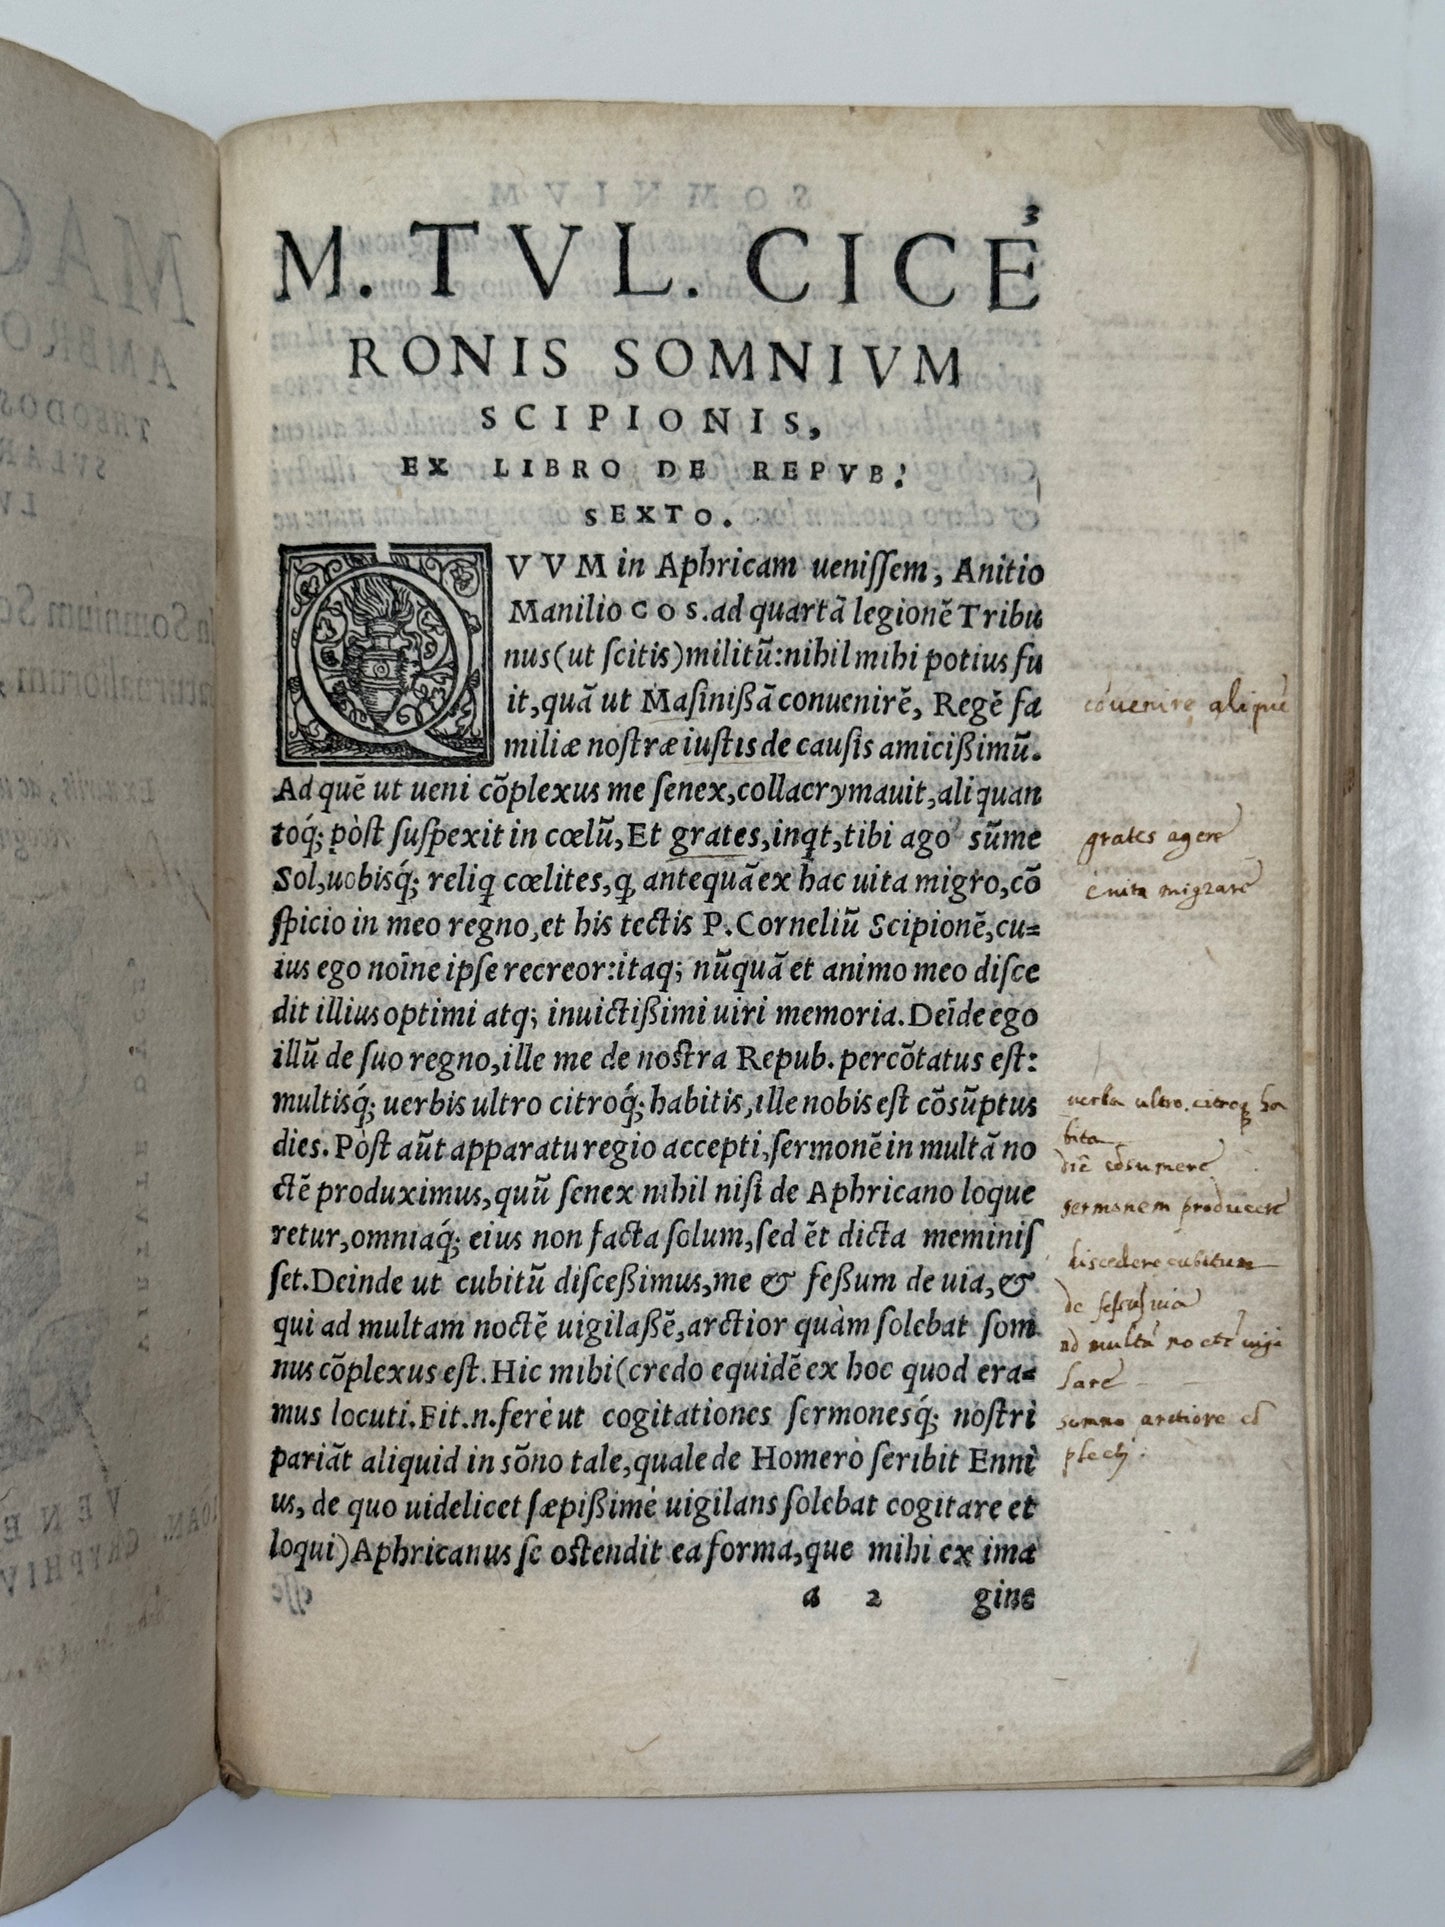 3
M. TVL. CICE
RONIS SOMNIVM
SCIPIONIS,
EX LIBRO DE REPVB.
SEXTO.
QVVM in Aphricam ueniſſem, Anitio
Manilio COS. ad quartā legionē Tribu
nus (ut ſcitis) militū: nihil mihi potius fu
it, quā ut Maſinißā conuenirē, Regē fa
miliæ noſtræ iuſtis de cauſis amicißimū.
Ad quē ut ueni cōplexus me ſenex, collacrymauit, aliquan
toq́; pòſt ſuſpexit in cœlū, Et grates, inqt, tibi ago sūme
Sol, uobisq́; reliq cœlites, q antequā ex hac uita migro, cō
ſpicio in meo regno, et his tectis P. Corneliū Scipionē, cu=
ius ego noīne ipſe recreor: itaq; nūquā et animo meo diſce
dit illius optimi atq; inuictißimi uiri memoria. Deīde ego
illū de ſuo regno, ille me de noſtra Repub. percōtatus eſt:
multisq́; uerbis ultro citroq́; habitis, ille nobis eſt cōsūptus
dies. Pòſt aūt apparatu regio accepti, ſermonē in multā no
ctē produximus, quū ſenex nihil niſi de Aphricano loque
retur, omniaq́; eius non facta ſolum, ſed ēt dicta meminiſ
ſet. Deinde ut cubitū diſceßimus, me & feßum de uia, &
qui ad multam noctē uigilaßē, arctior quàm ſolebat ſom
nus cōplexus eſt. Hic mihi (credo equidē ex hoc quod era=
mus locuti. Fit .n. ferè ut cogitationes ſermonesq́; noſtri
pariāt aliquid in sōno tale, quale de Homero ſcribit Enni
us, de quo uidelicet ſæpißimè uigilans ſolebat cogitare et
loqui) Aphricanus ſe oſtendit ea forma, que mihi ex ima
a 2 gine
cōuenire aliquē
grates agere
è uita migrare
uerba ultro. citroq ha
bita
diē cōsumere
sermonem producere
discedere cubitum
de fessus uia
ad multā noctē uigi
lare
somno arctiore cō
plecti.